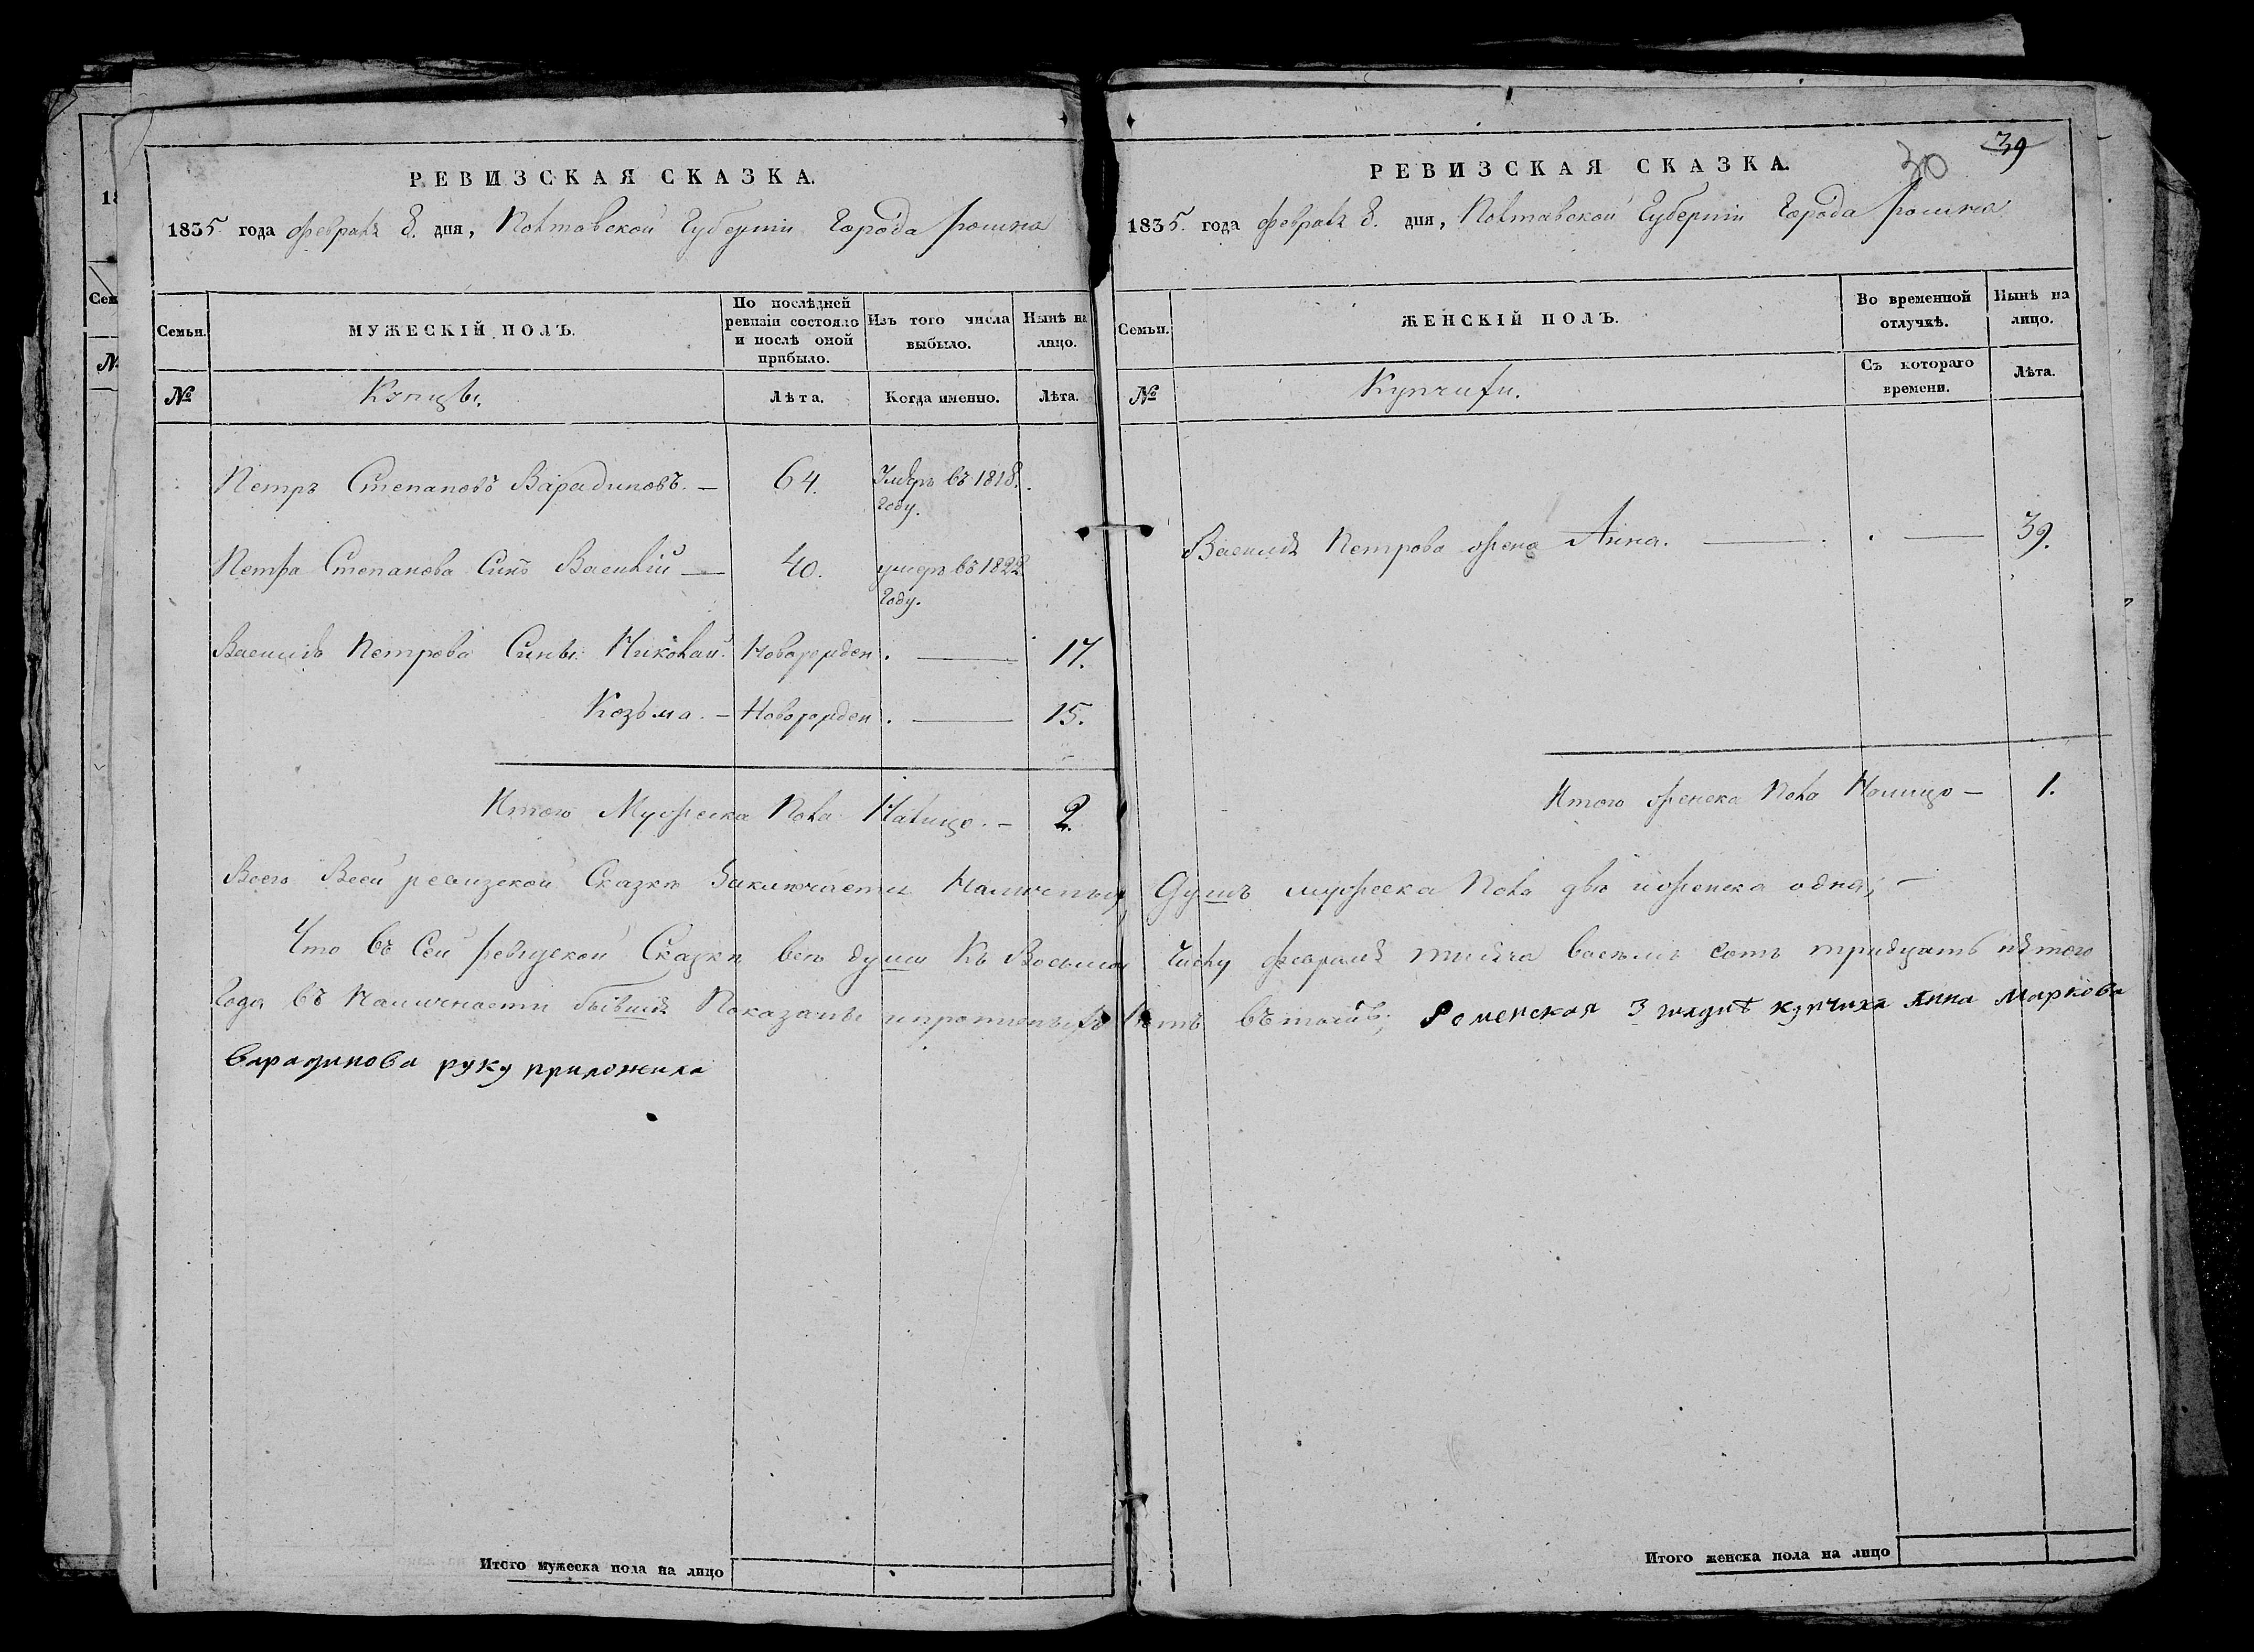 РЕВИЗСКАЯ СКАЗКА.
1835 года февраля 8. дня, Полтавской Губернии Города Ромна
Семьи.
МУЖЕСКІЙ ПОЛЪ.
По послѣдней ревизіи состояло и послѣ оной прибыло.
Изъ того числа выбыло.
Нынѣ на лицо.
№
Купцы.
Лѣта.
Когда именно.
Лѣта.
Петръ Степановъ Варадиновъ. — 64. Умеръ въ 1818. Году.
Петра Степанова Сынъ Василій — 40. умеръ въ 1822 Году.
Василія Петрова Сины: Николай. Новорожден . — 17.
Козьма. — Новорожден . — 15.
Итого Мужеска Пола Налицо. — 2.
30 39
РЕВИЗСКАЯ СКАЗКА.
1835. года февраля 8. дня, Полтавской Губерніи Города Ромна
Семьи.
ЖЕНСКІЙ ПОЛЪ.
Во временной отлучкѣ.
Нынѣ на лицо.
№
Купчихи.
Съ котораго времени.
Лѣта.
Василія Петрова жена Анна. — . . — 39.
Итого женска Пола Налицо — 1.
Всего Всей ревизской Сказкѣ Заключается Наличныхъ Душъ мужеска Пола двѣ и женска одна; —
Что въ Сей ревизской Сказкѣ всѣ души Къ Восьмому Числу февраля тисяча восемь сотъ тридцать пятого
Года въ Наличности бывшія Показаны и Роменская 3 гилдиѣ купчиха Анна Маркова
Варадинова руку приложила
Итого мужеска пола на лицо
Итого женска пола на лицо